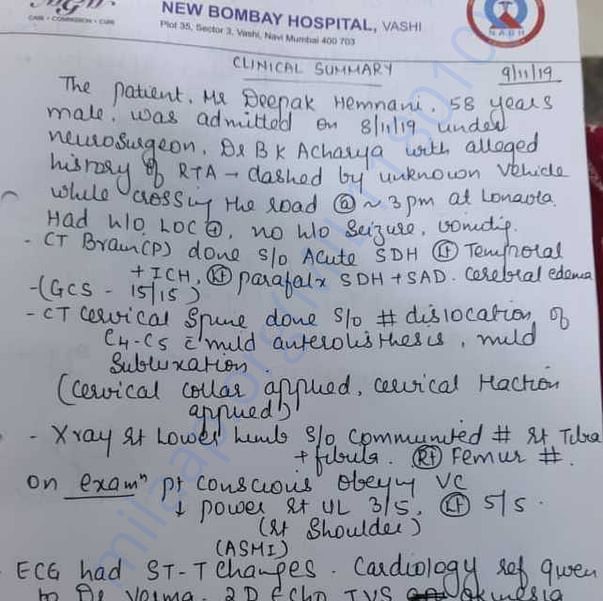 CARE • COMPASSION • CURE
NEW BOMBAY HOSPITAL, VASHI
Plot 35, Sector 3, Vashi, Navi Mumbai 400 703
NABH
CLINICAL SUMMARY
9/11/19
The patient, Mr Deepak Hemnani, 58 years
male, was admitted on 8/11/19 under
neurosurgeon, Dr B K Acharya with alleged
history of RTA → dashed by unknown vehicle
while crossing the road @ ~ 3 pm at Lonavla.
Had h/o LOC ⊕, no h/o Seizure, vomiting.
- CT Brain (P) done s/o Acute SDH (Lt) Temporal
+ ICH, (Rt) parafalx SDH + SAD. Cerebral edema
- (GCS - 15/15)
- CT cervical Spine done s/o # dislocation of
C4-C5 c̄ mild anterolisthesis, mild
Subluxation.
(Cervical collar applied, cervical traction
applied)
- Xray Rt Lower limb s/o communited # Rt Tibia
+ fibula. (Rt) Femur #.
on examⁿ pt conscious obeying VC
↓ power Rt UL 3/5, (Lt) 5/5.
(Rt Shoulder)
(ASMI)
ECG had ST-T changes. Cardiology ref given
to Dr Verma. 2D Echo IVS akinesia
milaap.org